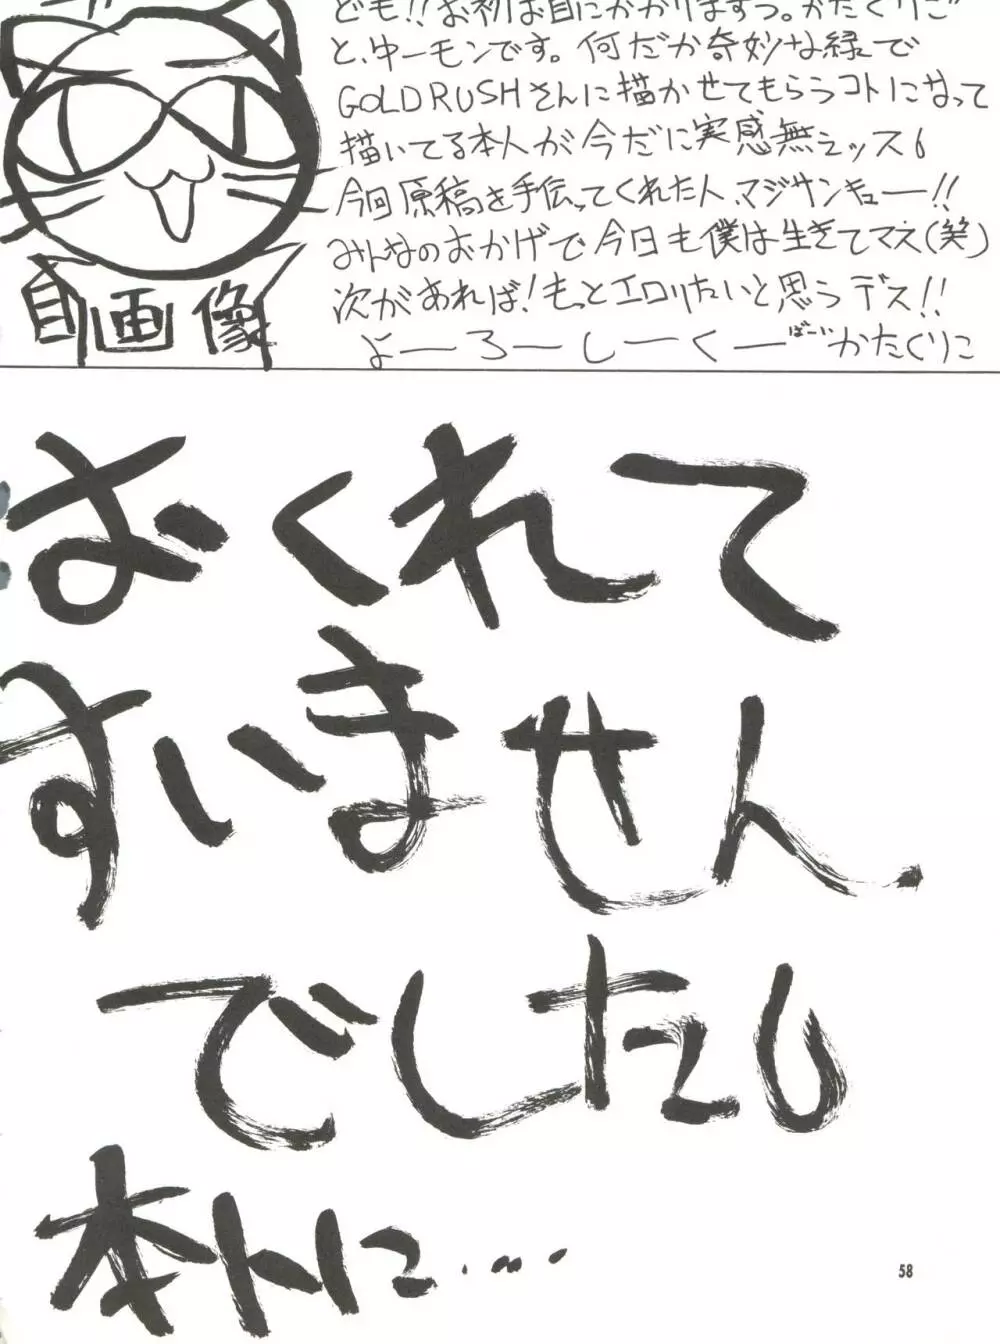 ども!!お初お目にかかりますっ。かたくりこ
と、申ーモンです。何だか奇妙な縁で
GOLDRUSHさんに描かせてもらうコトになって
描いてる本人が今だに実感無えッス。
今回原稿を手伝ってくれた人、マジサンキュー!!
みんなのおかげで今日も僕は生きてマス(笑)
次があれば!もっとエロりたいと思うデス!!
よーろーしーくー ばーい かたくりこ
自画像
おくれて
すいません
でした。
本トに・・・・
58